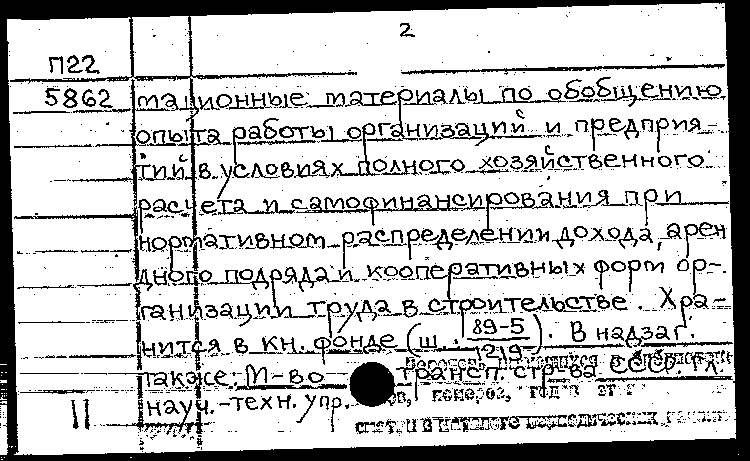 2
П22
5862 тационные материалы по обобщению
опыта работы организаций и предприя-
тий в условиях полного хозяйственного
расчета и самофинансирования при
нормативном распределении дохода, арен
дного подряда и кооперативных форм ор-
ганизации труда в строительстве. Хра-
нится в кн. фонде (ш. 89-5/1219). В надзаг.
также: М-во трансп. стр-ва СССР. Гл.
науч.-техн. упр.
II